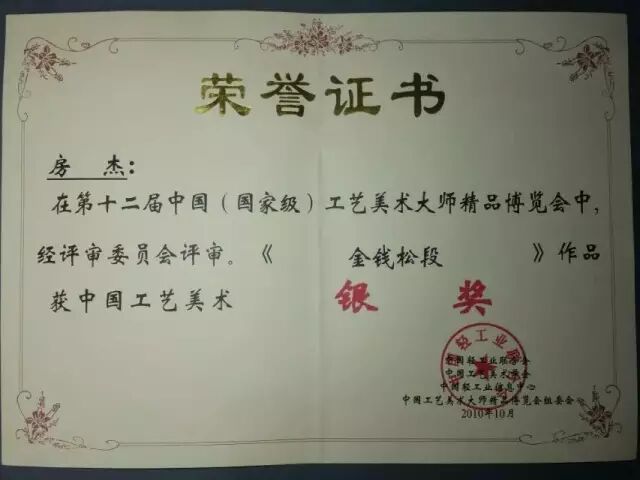 荣誉证书
房 杰：
在第十二届中国（国家级）工艺美术大师精品博览会中，
经评审委员会评审。《 金钱松段 》作品
获中国工艺美术 银 奖
中国轻工业联合会
中国工艺美术学会
中国轻工业信息中心
中国工艺美术大师精品博览会组委会
2010年10月